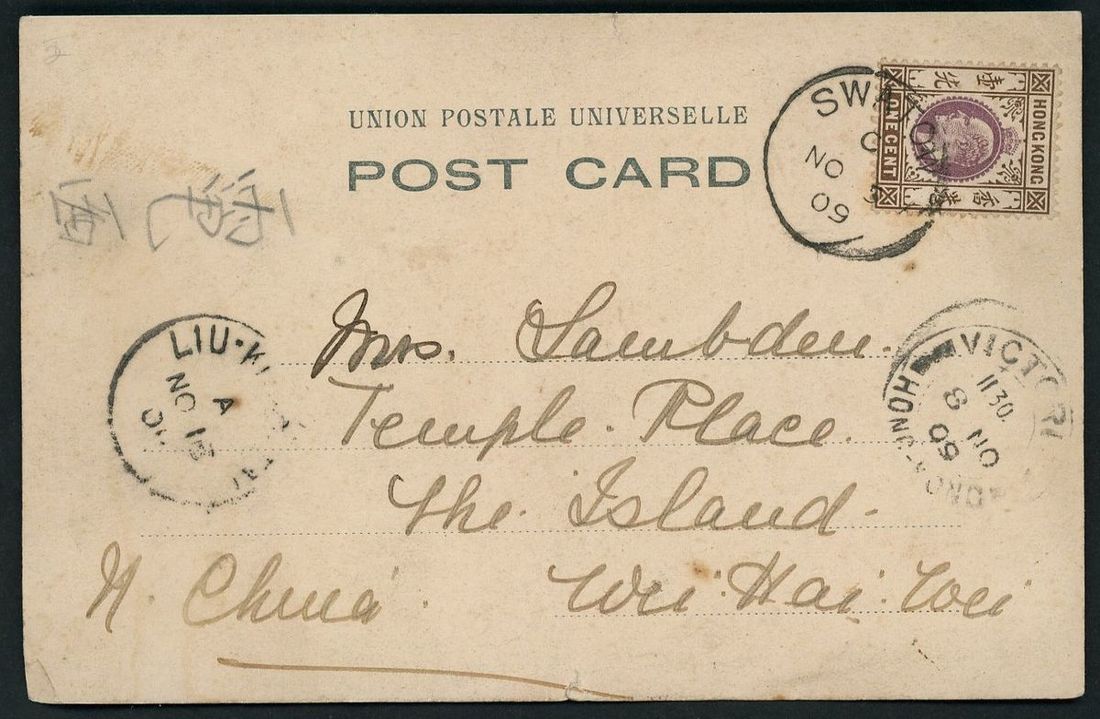 UNION POSTALE UNIVERSELLE
POST CARD
HONG KONG
壹先
香港
ONE CENT
SWATOW
C
NO
09
Mrs. Lambden.
Temple. Place.
The. Island.
Wei. Hai. Wei
N. China.
A
NO 15
VICTORIA
HONG-KONG
1130
8 NO
09